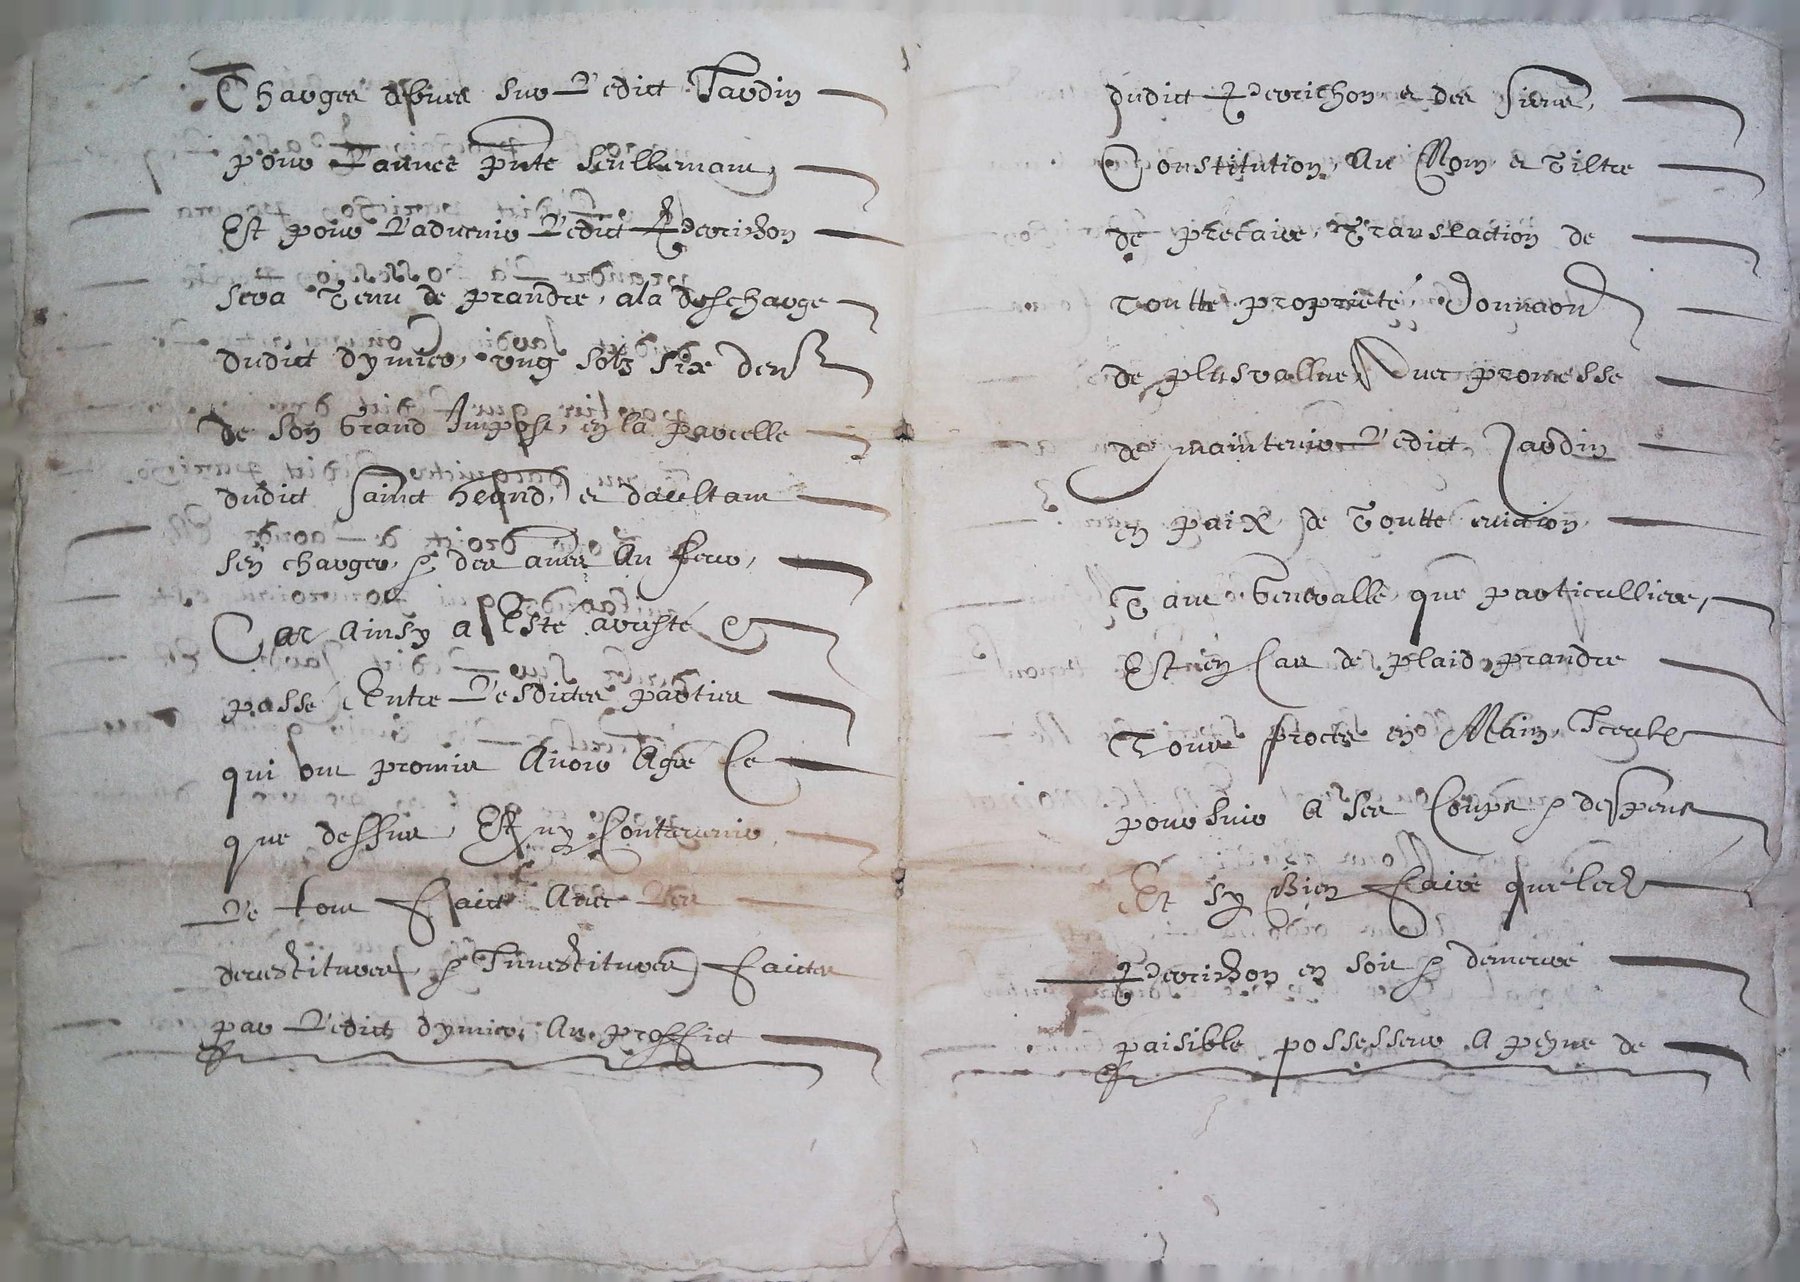 Charges debues sur Ledict Jardin
pour Lannee pnte seullemant
Est pour Ladvenir Ledict Perrichon
sera Tenu de prandre, a la descharge
dudict dymier, ung solz six den
de son Grand Impost, en la parcelle
dudict Sainct heand, et daultant
sen charger, &
Car ainsy a Este arresté &
passé Entre Lesdictes parties
qui ont promis Avoir Agre Ce
que dessus, Et ny Contrevenir,
Le tout Faict Avec Les
devestitures & Investitures Faictes
par Ledict dymier, Au proffict
dudict Perrichon et des siens,
Constitution, Au Nom et Tiltre
de precaire, Translaction de
Toutte propriete, Donnaon
de plusvallue, Avec promesse
de maintenir Ledict Jardin
en paix, de Toutte eviction,
Tant Generalle que particulliere,
Est en Cas de plaid, prandre
Tous proces en Main, Iceulx
poursuivre A ses Coups & despens
Et sy Bien Faire que led
Perrichon en soit & demeure
paisible possesseur A peyne de